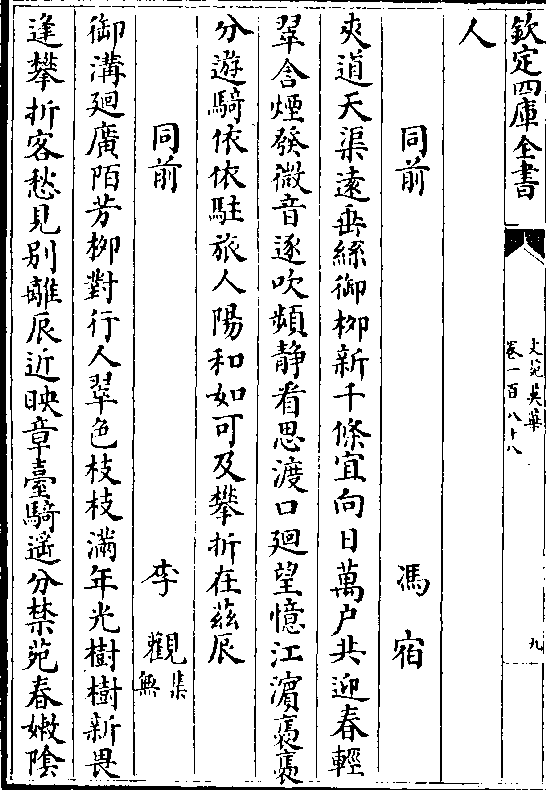 欽定四庫全書
文苑英華
卷一百八十八
九
人
同前 馮宿
夾道天渠遠垂絲御栁新千條宜向日萬户共迎春輕
翠含煙發微音逐吹頻静看思渡口廻望憶江濵裊裊
分遊騎依依駐旅人陽和如可及攀折在兹辰
同前 李觀集無
御溝廻廣陌芳栁對行人翠色枝枝滿年光樹樹新畏
逢攀折客愁見别離辰近映章臺騎遥分禁苑春嫩隂